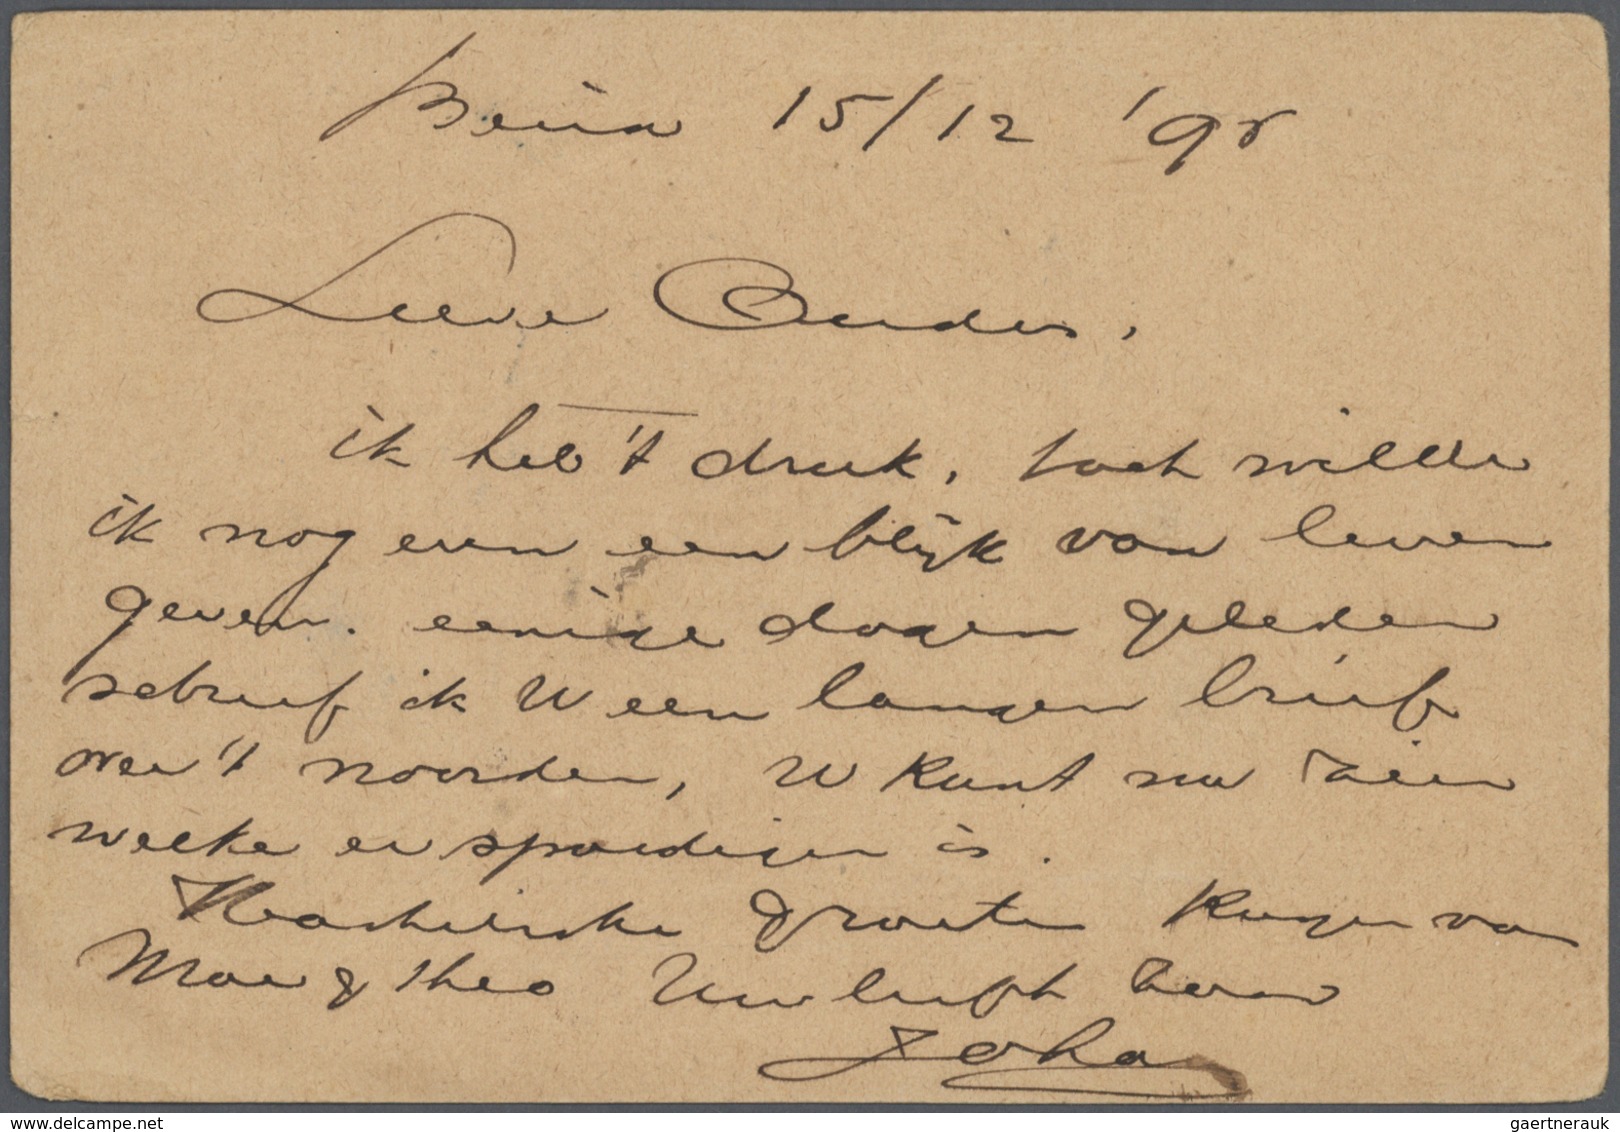 Beira 15/12 '98
Lieve Ouders,
ik heb 't druk, toch wilde
ik nog even een blijk van leven
geven. eenige dagen geleden
schreef ik U een langen brief
over 't noorden, U kunt nu zien
welke er spoediger is.
Hartelijke groeten kusjes van
Moe & Theo Uw liefh zoon
Joha
delcampe.net
gaertnerauk